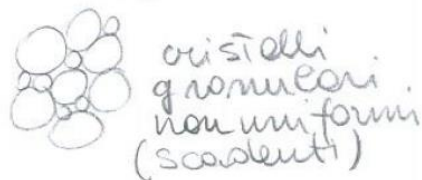 cristalli
granulari
non uniformi
(scadenti)